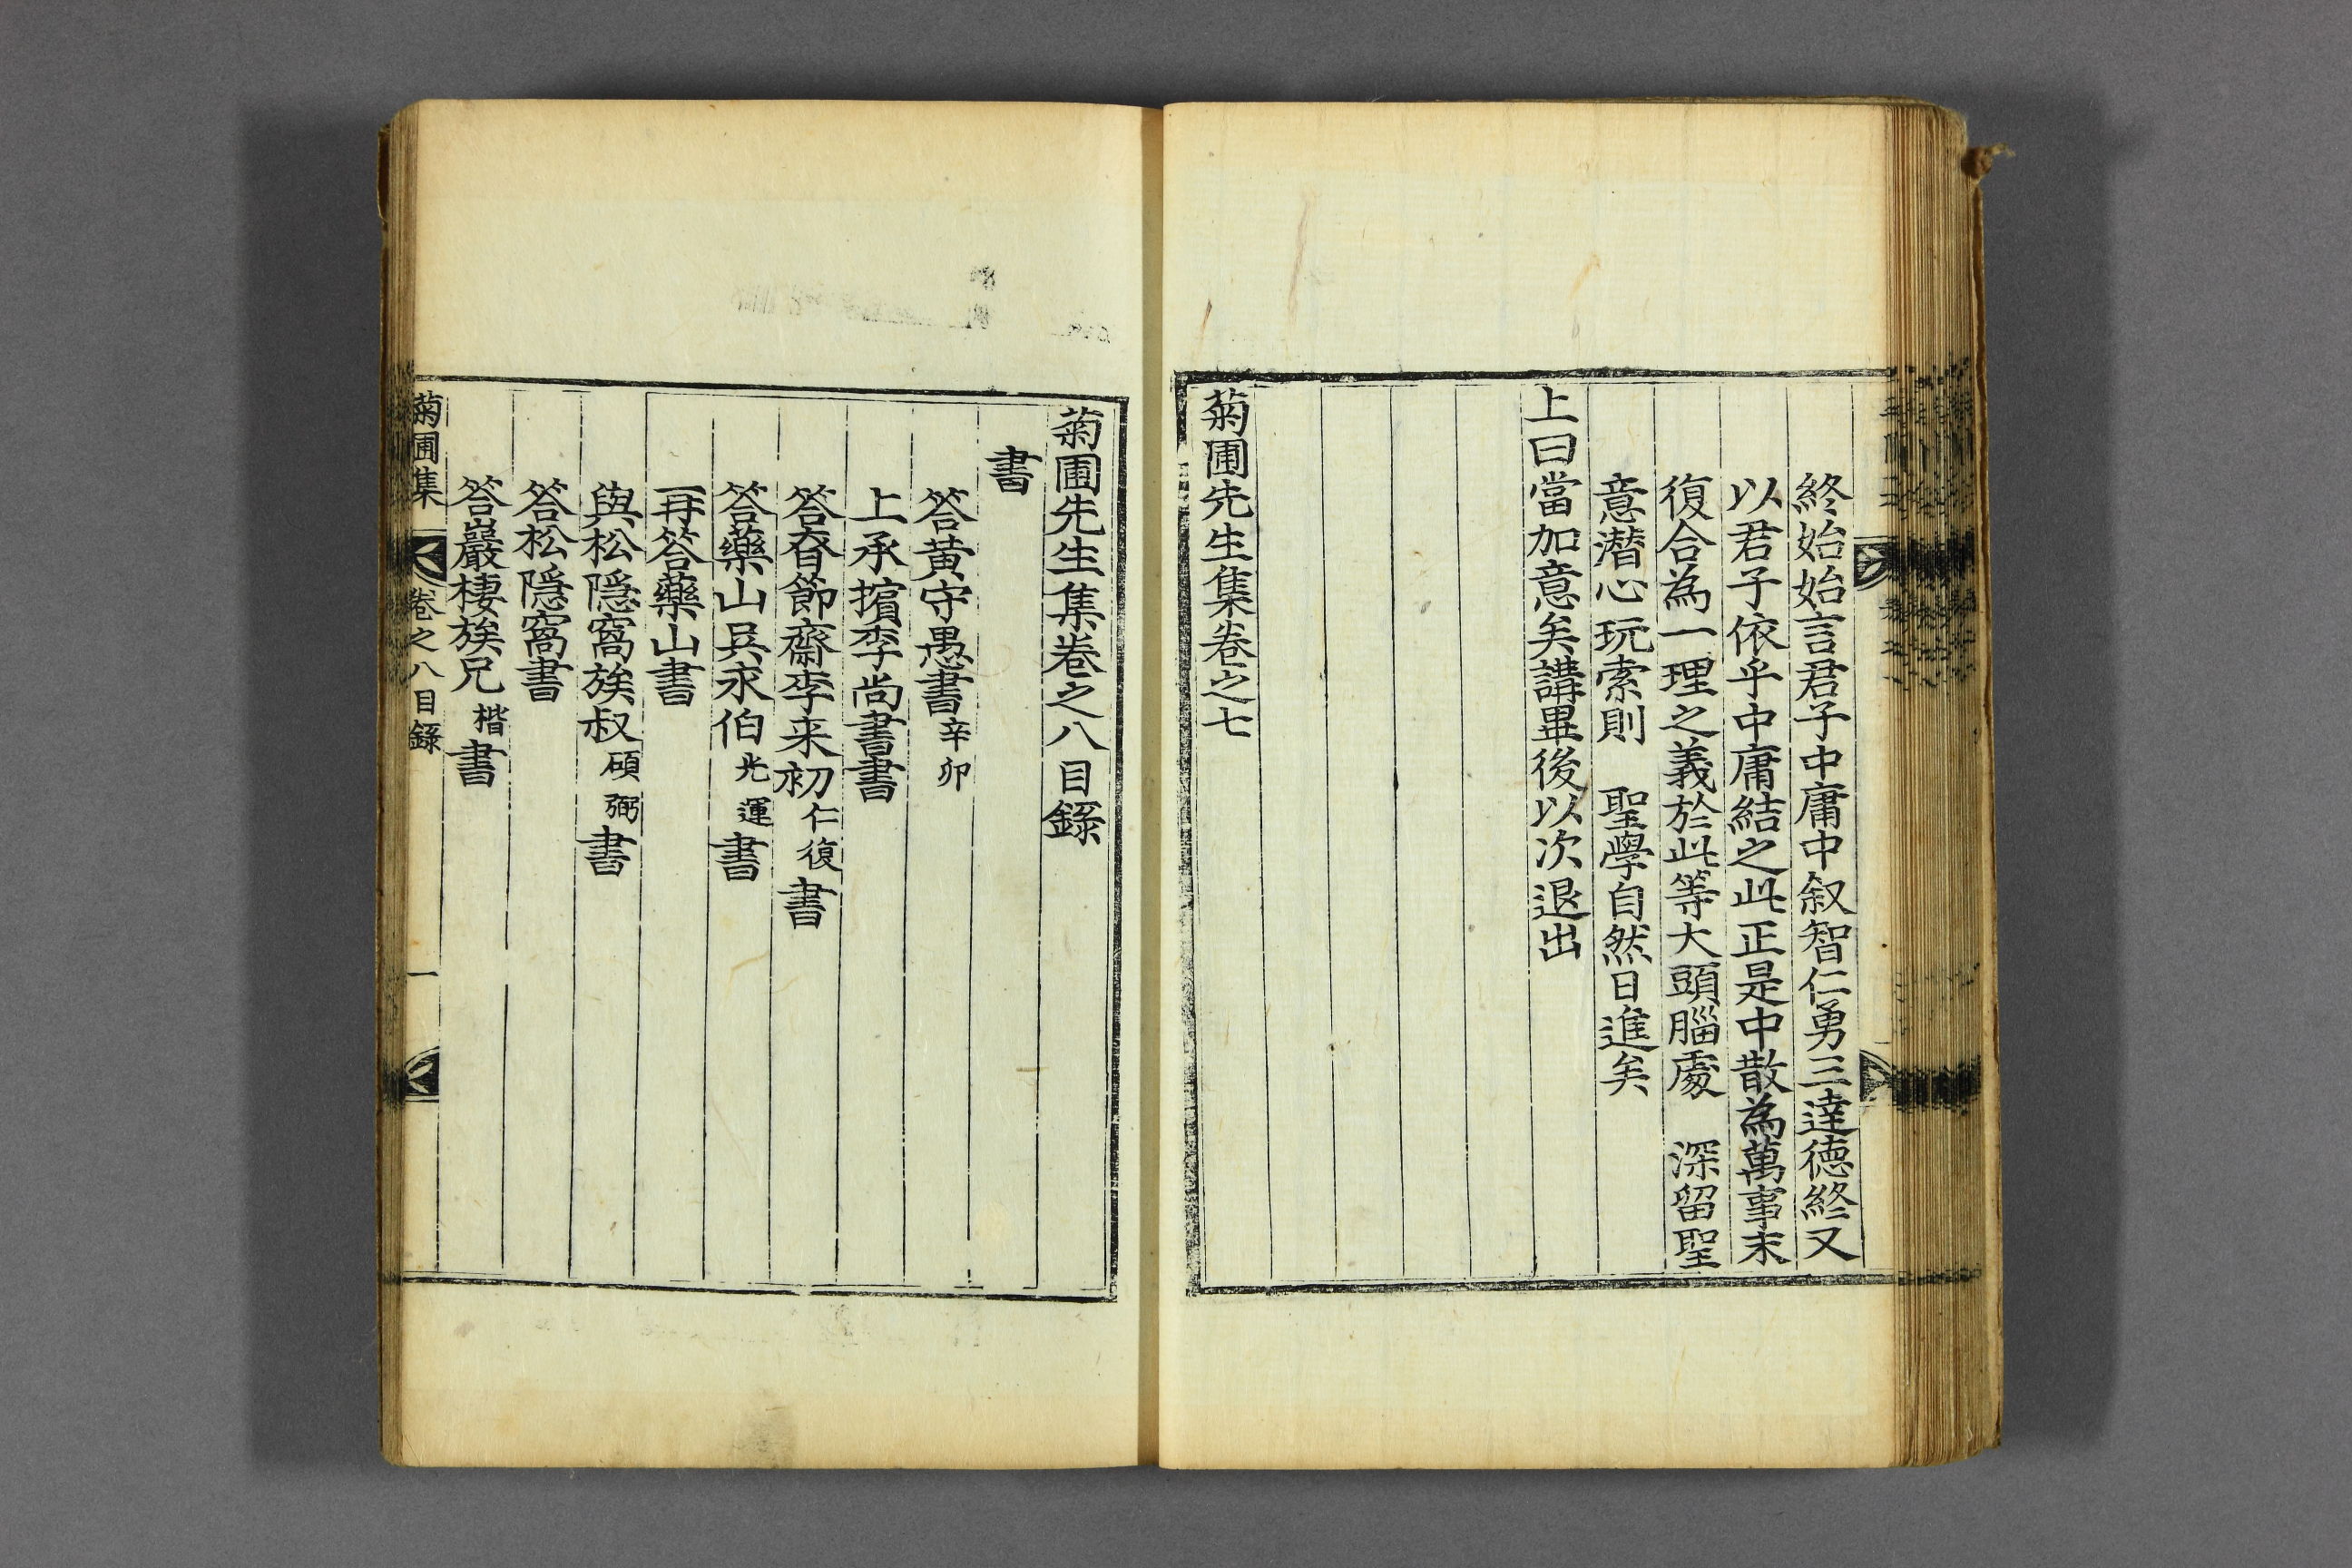 終始始言君子中庸中叙智仁勇三達德終又
以君子依乎中庸結之此正是中散為萬事末
復合為一理之義於此等大頭腦處 深留聖
意潛心玩索則 聖學自然日進矣
上曰當加意矣講畢後以次退出
菊圃先生集卷之七
菊圃先生集卷之八目錄
書
答黃守愚書 辛卯
上承擯李尚書書
答春節齋李来初 仁復 書
答藥山吳永伯 光運 書
再答藥山書
與松隱窩族叔 碩弼 書
答松隱窩書
答巖棲族兄 楷 書
菊圃集 卷之八目錄 一